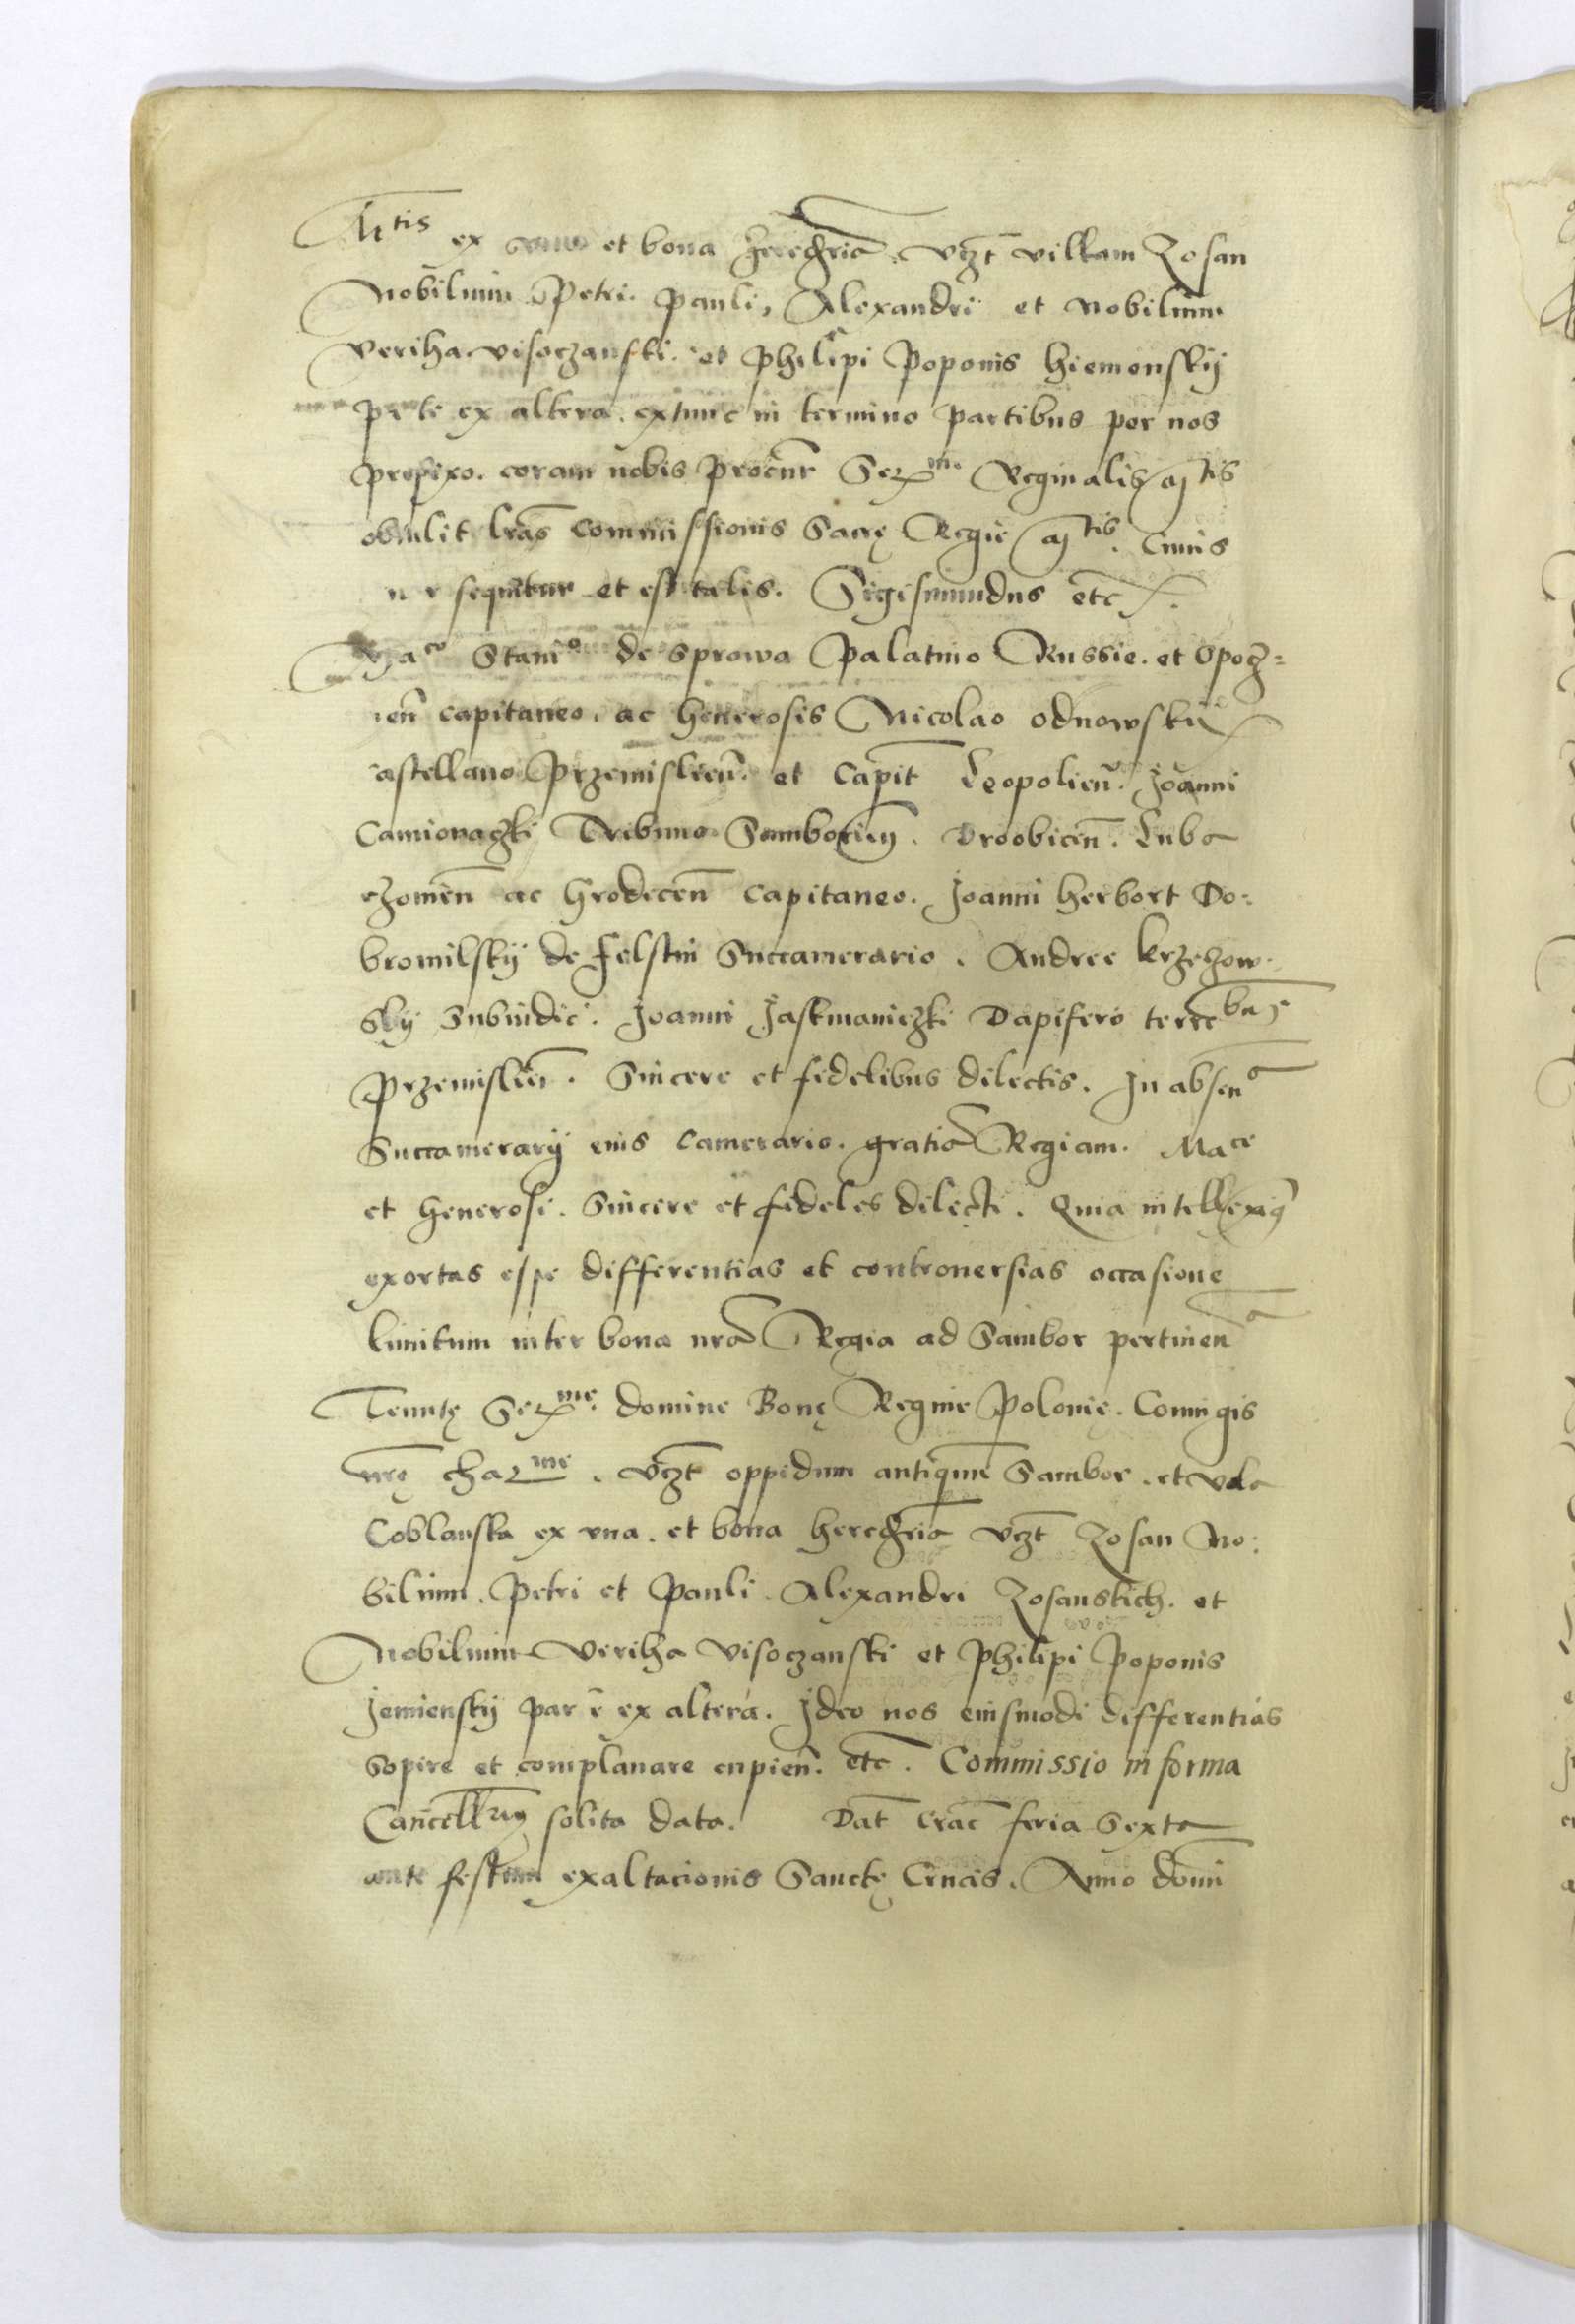 Mtis ex una et bona heredria. vczt villam Zosan
Nobilium Petri. Pauli, Alexandri et nobilium
Veriha visoczanski. et Philipi Poponis hiemensky
parte ex altera. extunc in termino partibus per nos
prefixo. coram nobis procur Serme Reginalis Mtis
obtulit lras Commissionis Sacrę Regie Mtis. Cuius
sequitur et est talis. Sigismundus etc.
Maco Stanio de Sprowa Palatino Russie. et Opocz=
ien capitaneo. ac Generosis Nicolao Odnowskii
castellano Przemislien. et Capit Leopolien. Joanni
Camionaczki Tribuno Samborien. Droobicen. Luba
czomen ac Grodecen Capitaneo. Joanni herbort Do:
bromilsky de Felstin Succamerario. Andree Krzeczow
sky Subiudici. Joanni Jaskmaniczki Dapifero terre
Przemislien. Sincere et fidelibus dilectis. In absena
Succamerarij eius Camerario. gratia Regiam. Mace
et Generosi. Sincere et fideles dilecti. Quia intellexim
exortas esse differentias et controuersias occasione
limitum inter bona nra Regia ad Sambor pertinena
Tenutę Serme. domine Bonę Regine Polonie. Coniugis
nrę charme. vczt oppidum antiquum Sambor. et villa
Coblanska ex vna. et bona heredria vczt Zosan No:
bilium. Petri et Pauli. Alexandri Zosanskich. et
Nobilium Veriha Visoczanski et Philipi Poponis
Jemiensky parte ex altera. Ideo nos eiusmodi differentias
sopire et complanare cupien. etc. Commissio in forma
Cancell solita data. Dat Crac feria Sexta
ante festum exaltacionis Sanctę Crucis. Anno domi